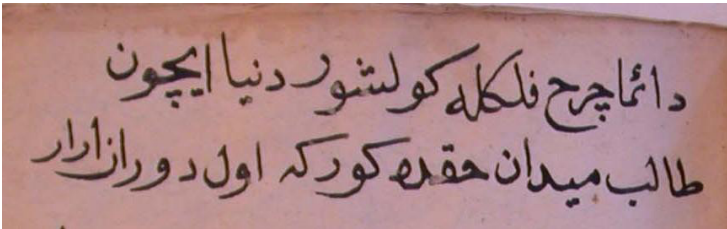 دائما چرخ فلكله كولشور دنيا ايچون
طالب ميدان حقده كوركه اول دوران ارار